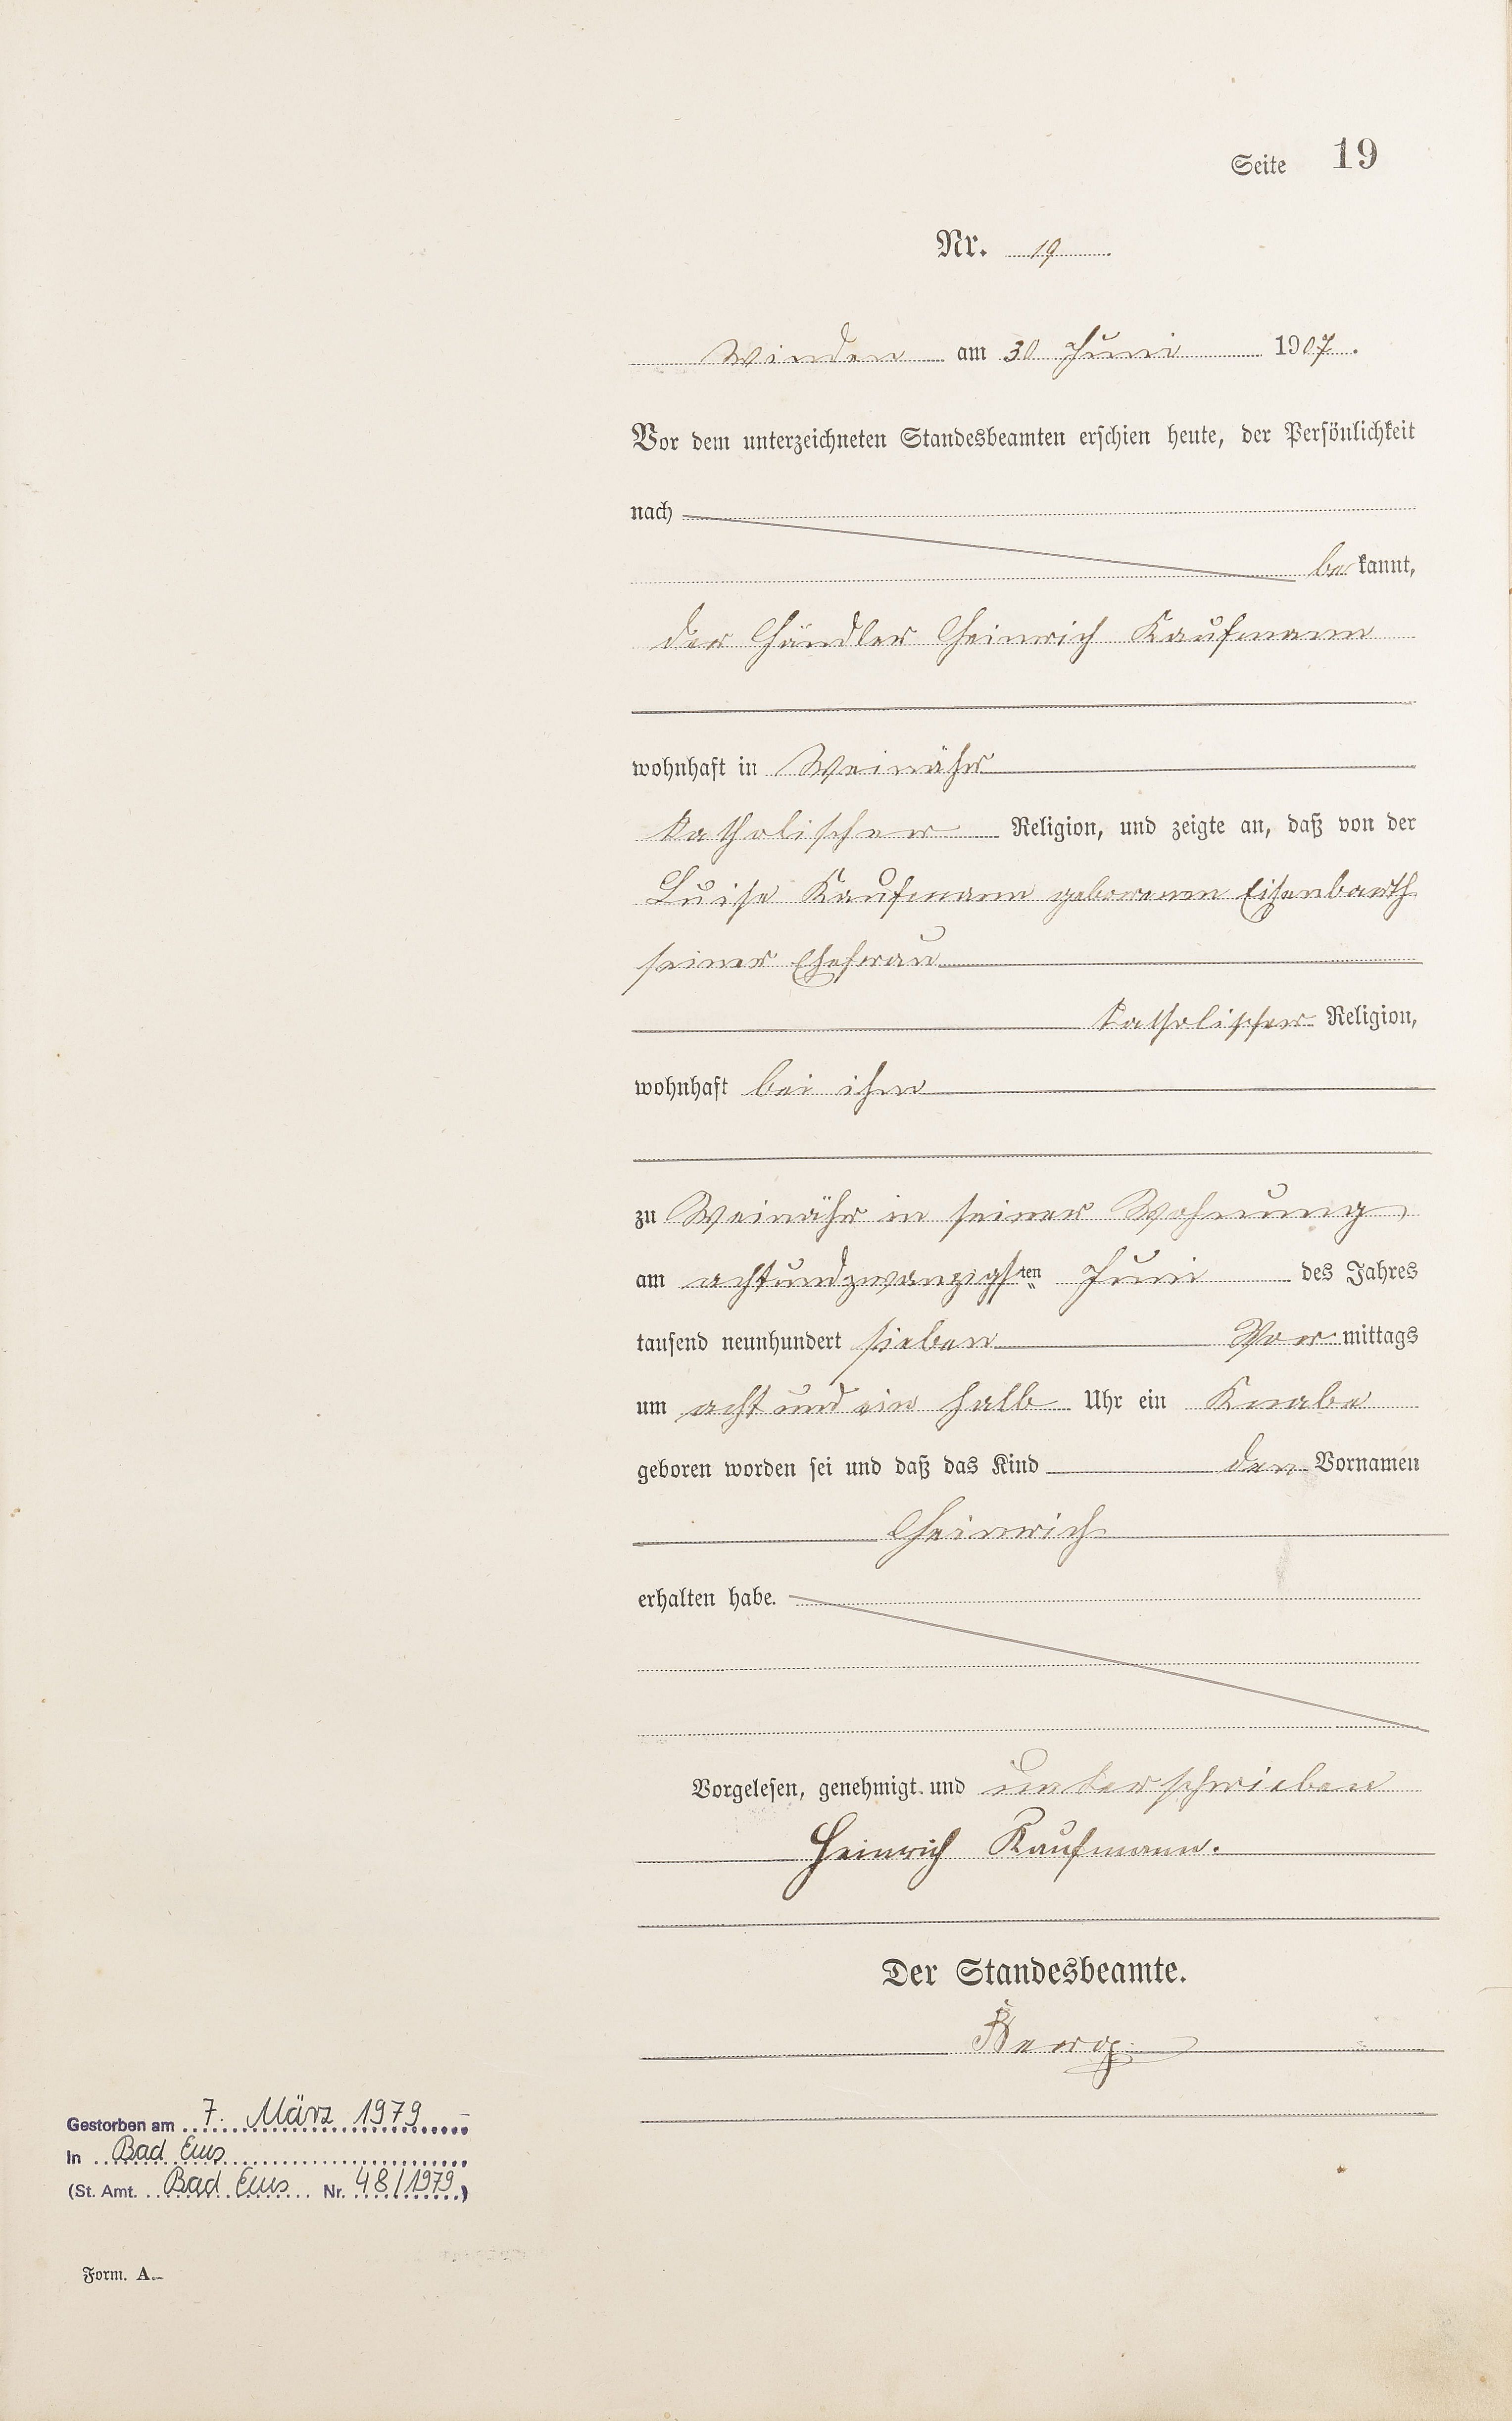 Seite 19
Nr. 19
Winden am 30 Juni 1907.
Vor dem unterzeichneten Standesbeamten erschien heute, der Persönlichkeit
nach
be kannt,
der Händler Heinrich Kaufmann
wohnhaft in Weinähr
katholischer Religion, und zeigte an, daß von der
Luise Kaufmann geborenen Eisenbarth
seiner Ehefrau
katholischer Religion,
wohnhaft bei ihm
zu Weinähr in seiner Wohnung
am achtundzwanzigsten Juni des Jahres
tausend neunhundert sieben Vor mittags
um acht und ein halb Uhr ein Knabe
geboren worden sei und daß das Kind den Vornamen
Heinrich
erhalten habe.
Vorgelesen, genehmigt und unterschrieben
Heinrich Kaufmann.
Der Standesbeamte.
Berg
Gestorben am 7. März 1979
In Bad Ems
(St. Amt. Bad Ems Nr. 48/1979)
Form. A.